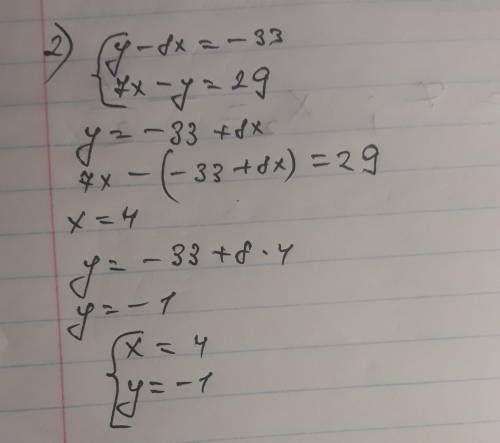 2) { y - 8x = -33
7x - y = 29
y = -33 + 8x
7x - (-33 + 8x) = 29
x = 4
y = -33 + 8 · 4
y = -1
{ x = 4
y = -1